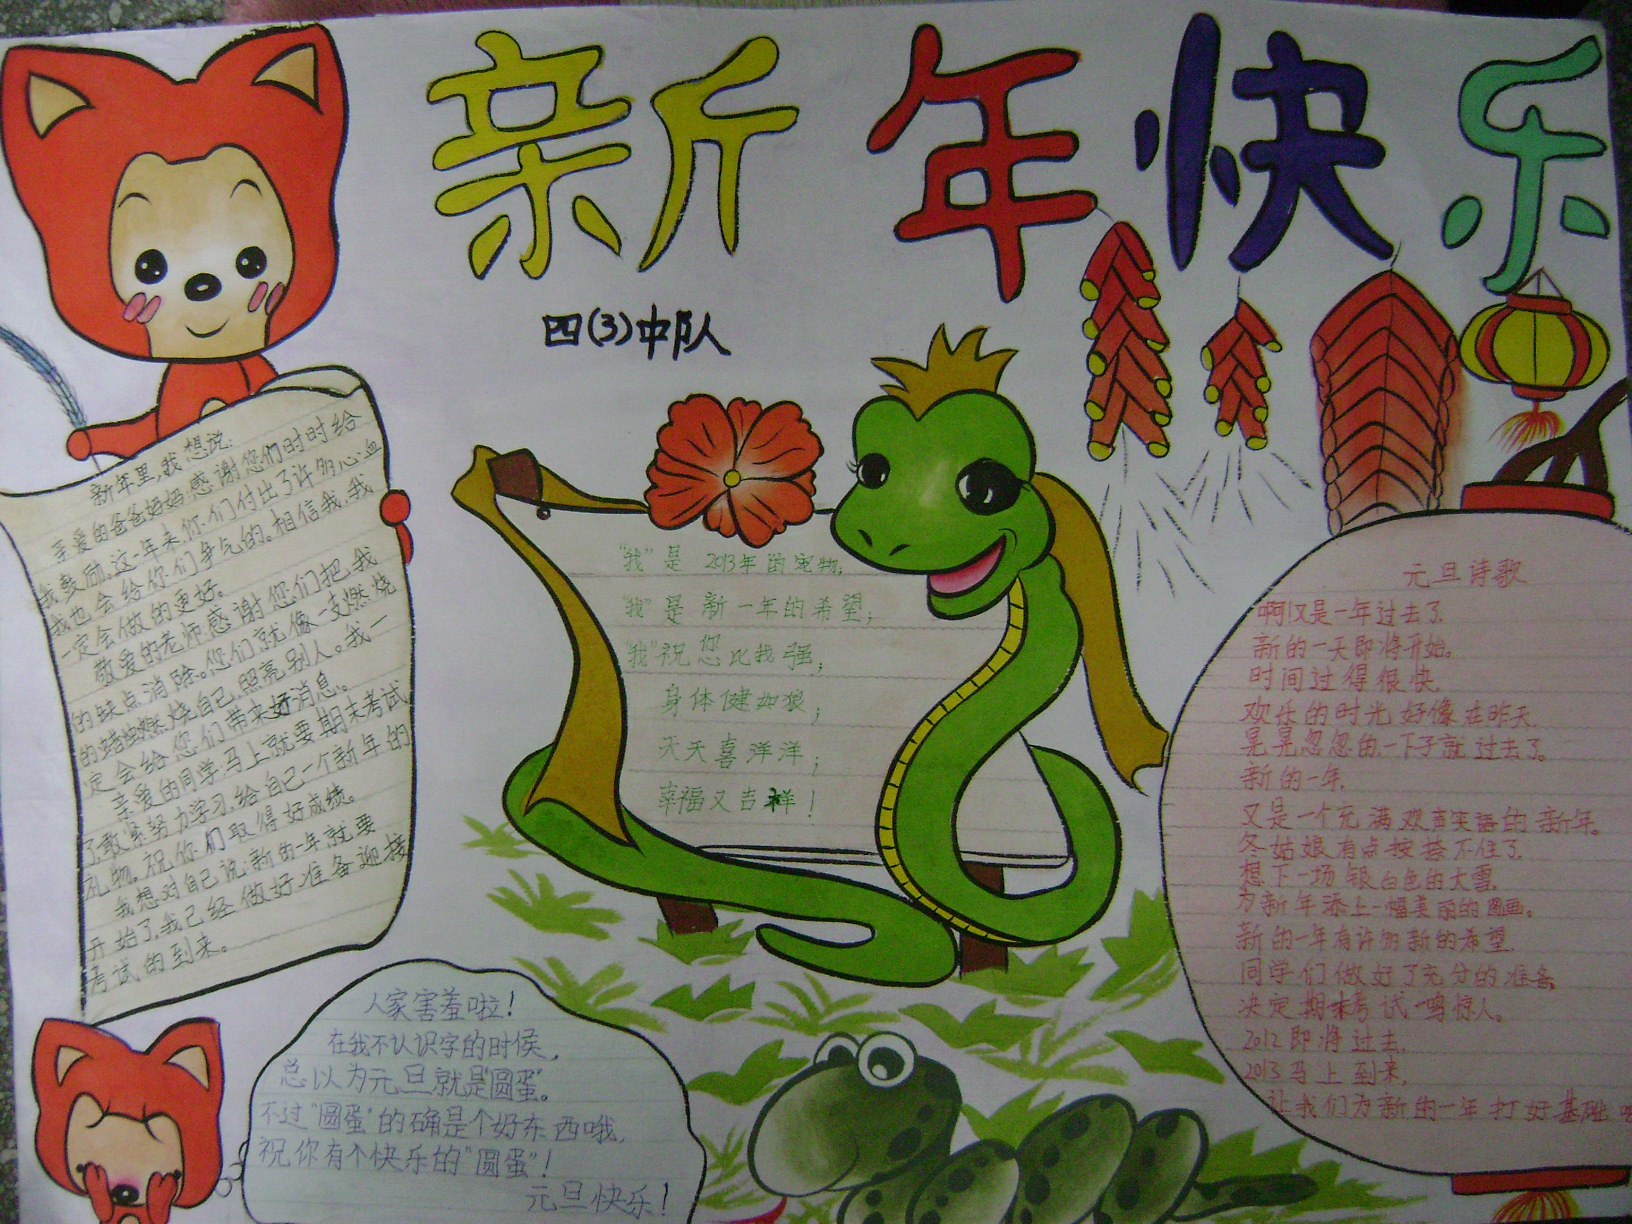 新年快乐
四(3)中队
新年里,我想说:
亲爱的爸爸妈妈:感谢您们时时给
我鼓励。这一年来,你们付出了许多心血
我也会给你们争气的。相信我,我
一定会做的更好。
敬爱的老师,感谢您们把我
的缺点消除。您们就像一支燃烧
的蜡烛燃烧自己,照亮别人。我一
定会给您们带来好消息。
亲爱的同学,马上就要期末考试
了,敢紧努力学习,给自己一个新年的
礼物。祝你们取得好成绩。
我想对自己说:新的一年就要
开始了,我已经做好准备迎接
考试的到来。
"我"是 2013年的宠物;
"我"是新一年的希望;
"我"祝您比我强;
身体健如狼;
天天喜洋洋;
幸福又吉祥!
元旦诗歌
啊!又是一年过去了,
新的一天即将开始。
时间过得很快,
欢乐的时光好像在昨天,
晃晃忽忽的一下子就过去了。
新的一年,
又是一个充满欢声笑语的新年。
冬姑娘有点按捺不住了,
想下一场银白色的大雪,
为新年添上一幅美丽的图画。
新的一年有许多新的希望,
同学们做好了充分的准备,
决定期末考试一鸣惊人。
2012即将过去,
2013马上到来,
让我们为新的一年打好基础吧
人家害羞啦!
在我不认识字的时候,
总以为元旦就是"圆蛋"。
不过"圆蛋"的确是个好东西哦,
祝你有个快乐的"圆蛋"!
元旦快乐!